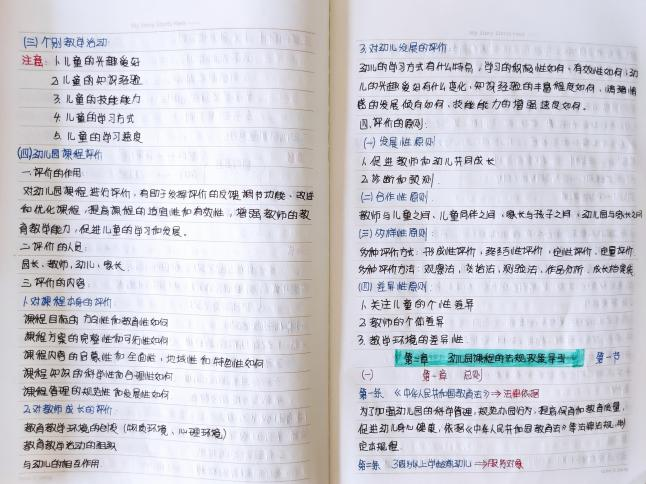 (三) 个别教学活动:
注意: 1. 儿童的兴趣爱好
2. 儿童的知识经验
3. 儿童的技能能力
4. 儿童的学习方式
5. 儿童的学习速度
(四) 幼儿园课程评价
一. 评价的作用:
对幼儿园课程进行评价, 有助于发挥评价的反馈、调节功能、改进
和优化课程, 提高课程的适宜性和有效性, 增强教师的教
育教学能力, 促进儿童的学习和发展。
二. 评价的人员:
园长、教师、幼儿、家长
三. 评价的内容:
1. 对课程本身的评价:
课程目标的方向性和教育性如何
课程方案的完整性和可行性如何
课程内容的启蒙性和全面性, 地域性和特色性如何
课程知识的科学性和合理性如何
课程管理的规范性和发展性如何
2. 对教师成长的评价:
教育教学环境的创设 (物质环境、心理环境)
教育教学活动的组织
与幼儿的相互作用
3. 对幼儿发展的评价:
幼儿的学习方式有什么特点, 学习的积极性如何, 有效性如何; 幼
儿的兴趣爱好有什么变化, 知识经验的丰富程度如何, 情绪情
感的发展倾向如何, 技能能力的增强速度如何。
四. 评价的原则:
(一) 发展性原则:
1. 促进教师和幼儿共同成长
2. 诊断和预测
(二) 合作性原则:
教师与儿童之间、儿童同伴之间、家长与孩子之间、幼儿园与家长之间
(三) 多样性原则:
多种评价方式: 形成性评价, 终结性评价, 定性评价, 定量评价
多种评价方法: 观察法, 谈话法, 测验法, 作品分析, 成长档案袋
(四) 差异性原则:
1. 关注儿童的个性差异
2. 教师的个体差异
3. 教学环境的差异性
第二章 幼儿园课程的法规政策导 第一节
(一) 第一章 总则
第一条 《中华人民共和国教育法》⇒法律依据
为了加强幼儿园的科学管理, 规范办园行为, 提高保育和教育质量,
促进幼儿身心健康, 依据《中华人民共和国教育法》等法律法规, 制
定本规程
第二条 3周岁以上学龄前幼儿⇒服务对象